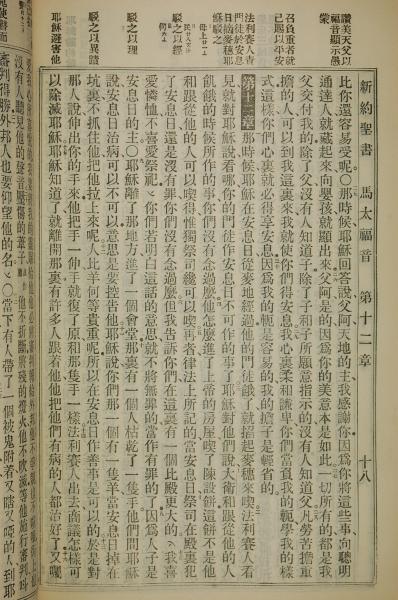 新約聖書 馬太福音 第十二章 十八
讚美天父以
福音顯示愚
蒙
召負重者就
己賜以平安
法利賽人責
門徒於安息
日摘麥穗耶
穌駁之
駁之以經
駁之以理
駁之以異蹟
耶穌避害他
比你還容易受呢〇那時候耶穌回答說父阿天地的主我感謝你因爲你將這些事向聰明
通達人就藏起來向嬰孩就顯出來父阿是的因爲你的美意本是如此一切所有的都是我
父交付我的除了父沒有人知道子除了子和子所願意指示的沒有人知道父凡勞苦擔重
擔的人可以到我這裏來我就使你們得安息我心裏柔和謙卑你們當負我的軛學我的樣
式這樣你們心裏就必得享安息因爲我的軛是容易的我的擔子是輕省的
第十二章 那時候耶穌在安息日從麥地經過他的門徒餓了就掐起麥穗來喫法利賽人看
見就對耶穌說看哪你的門徒作安息日不可作的事了耶穌對他們說大衛和跟從他的人
飢餓的時候所作的事你們沒有念過麼他怎麼進了上帝的房屋喫了陳設餅這餅不是他
和跟從他的人可以喫得惟獨祭司纔可以喫再者律法上所記的當安息日祭司在殿裏犯
了安息日還是沒有罪你們沒有念過麼但我告訴你們在這裏有一個比殿更大的我喜
愛憐恤不喜愛祭祀你們若明白這話的意思就不將無罪的當作有罪的了因爲人子是
安息日的主〇耶穌離了那地方進了一個會堂那裏有一個人枯乾了一隻手他們問耶穌
說安息日治病可以不可以意思是要控告他耶穌說你們那一個有一隻羊當安息日掉在
坑裏不抓住他把他拉上來呢人比羊何等貴重呢所以在安息日作善事是可以的於是對
那人說伸出你的手來他把手一伸手就復了原和那隻手一樣法利賽人出去商議怎樣可
以除滅耶穌耶穌知道了就離開那裏有許多人跟着他他把他們有病的人都治好了又囑
沒有人聽見他的聲音壓傷的葦子他不折斷將殘的燈火他不吹滅等他施行審判
審判得勝外邦人也要仰望他的名〇當下有人帶了一個被鬼附着又瞎又啞的人到耶